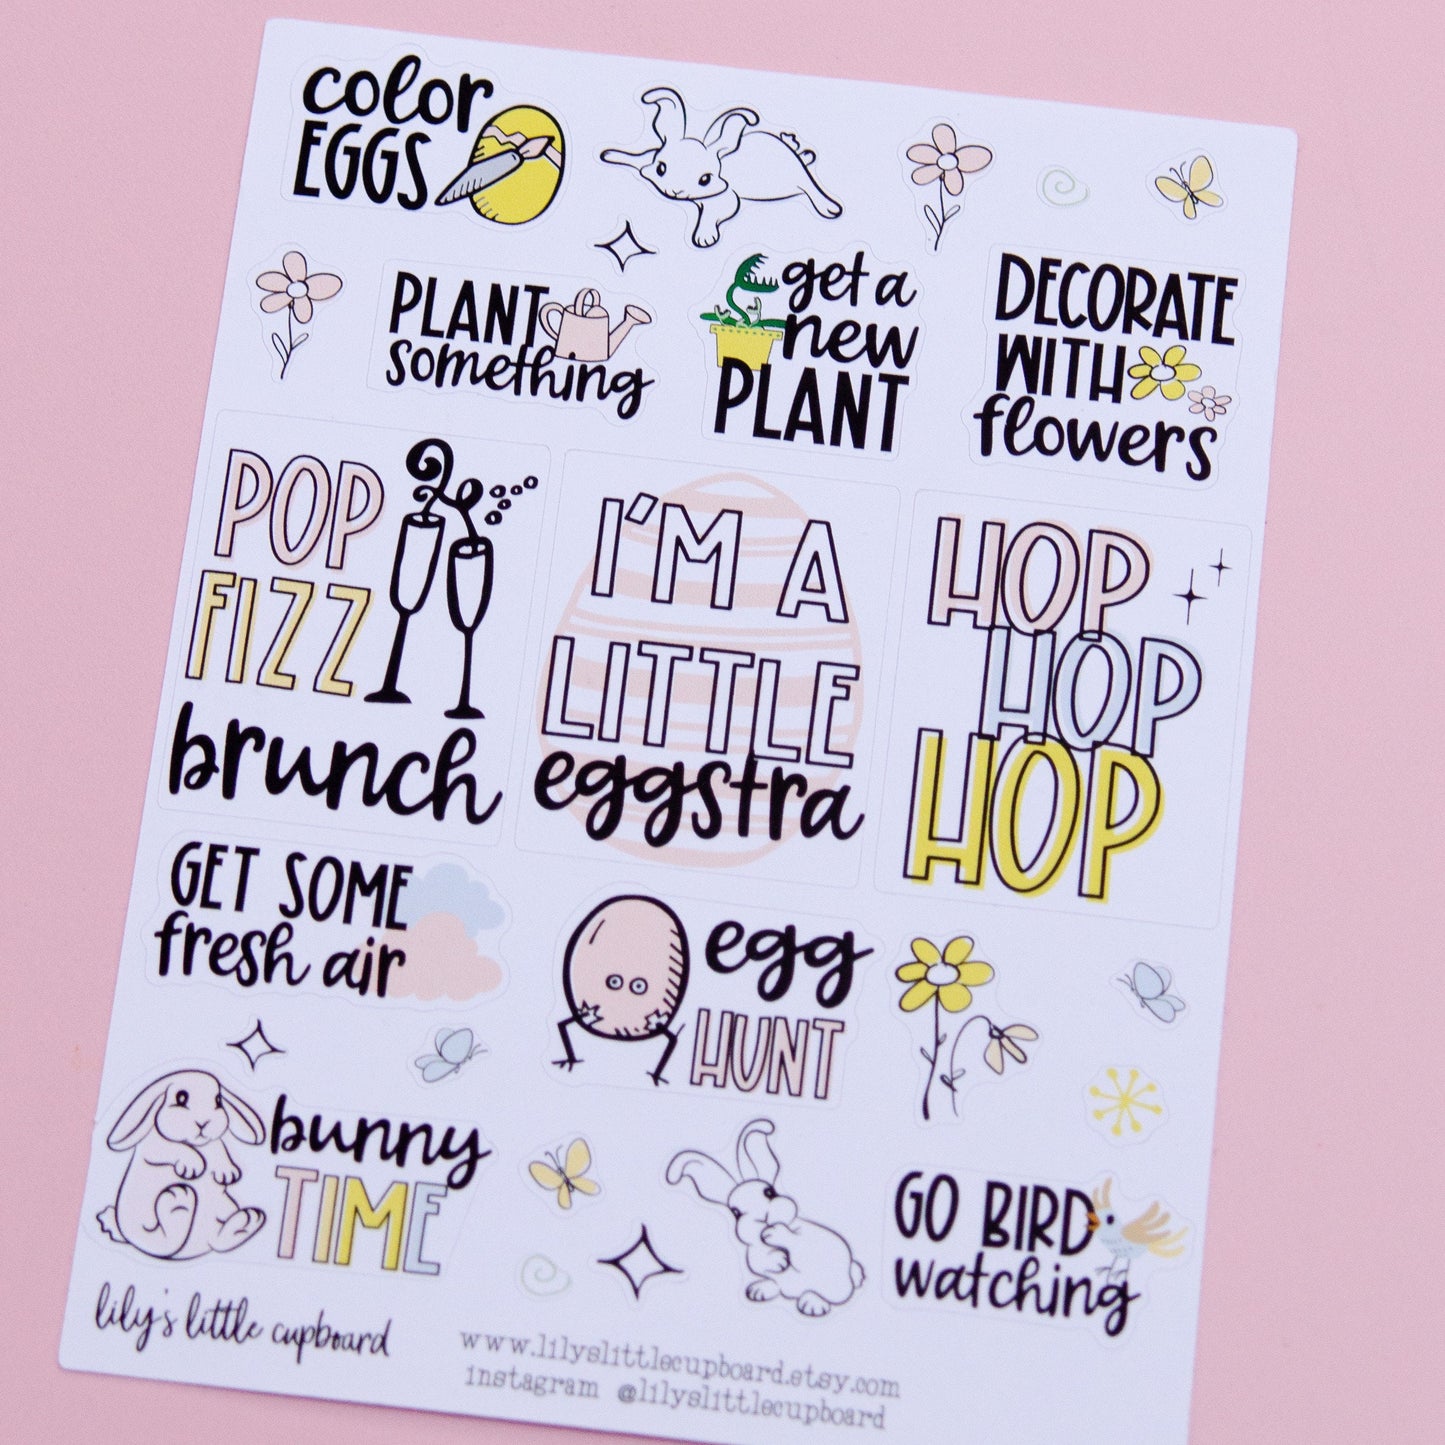 color
EGGS
PLANT
something
get a
new
PLANT
DECORATE
WITH
flowers
POP
FIZZ
brunch
I'M A
LITTLE
eggstra
HOP
HOP
HOP
GET SOME
fresh air
egg
HUNT
bunny
TIME
GO BIRD
watching
lily's little cupboard
www.lilyslittlecupboard.etsy.com
instagram @lilyslittlecupboard